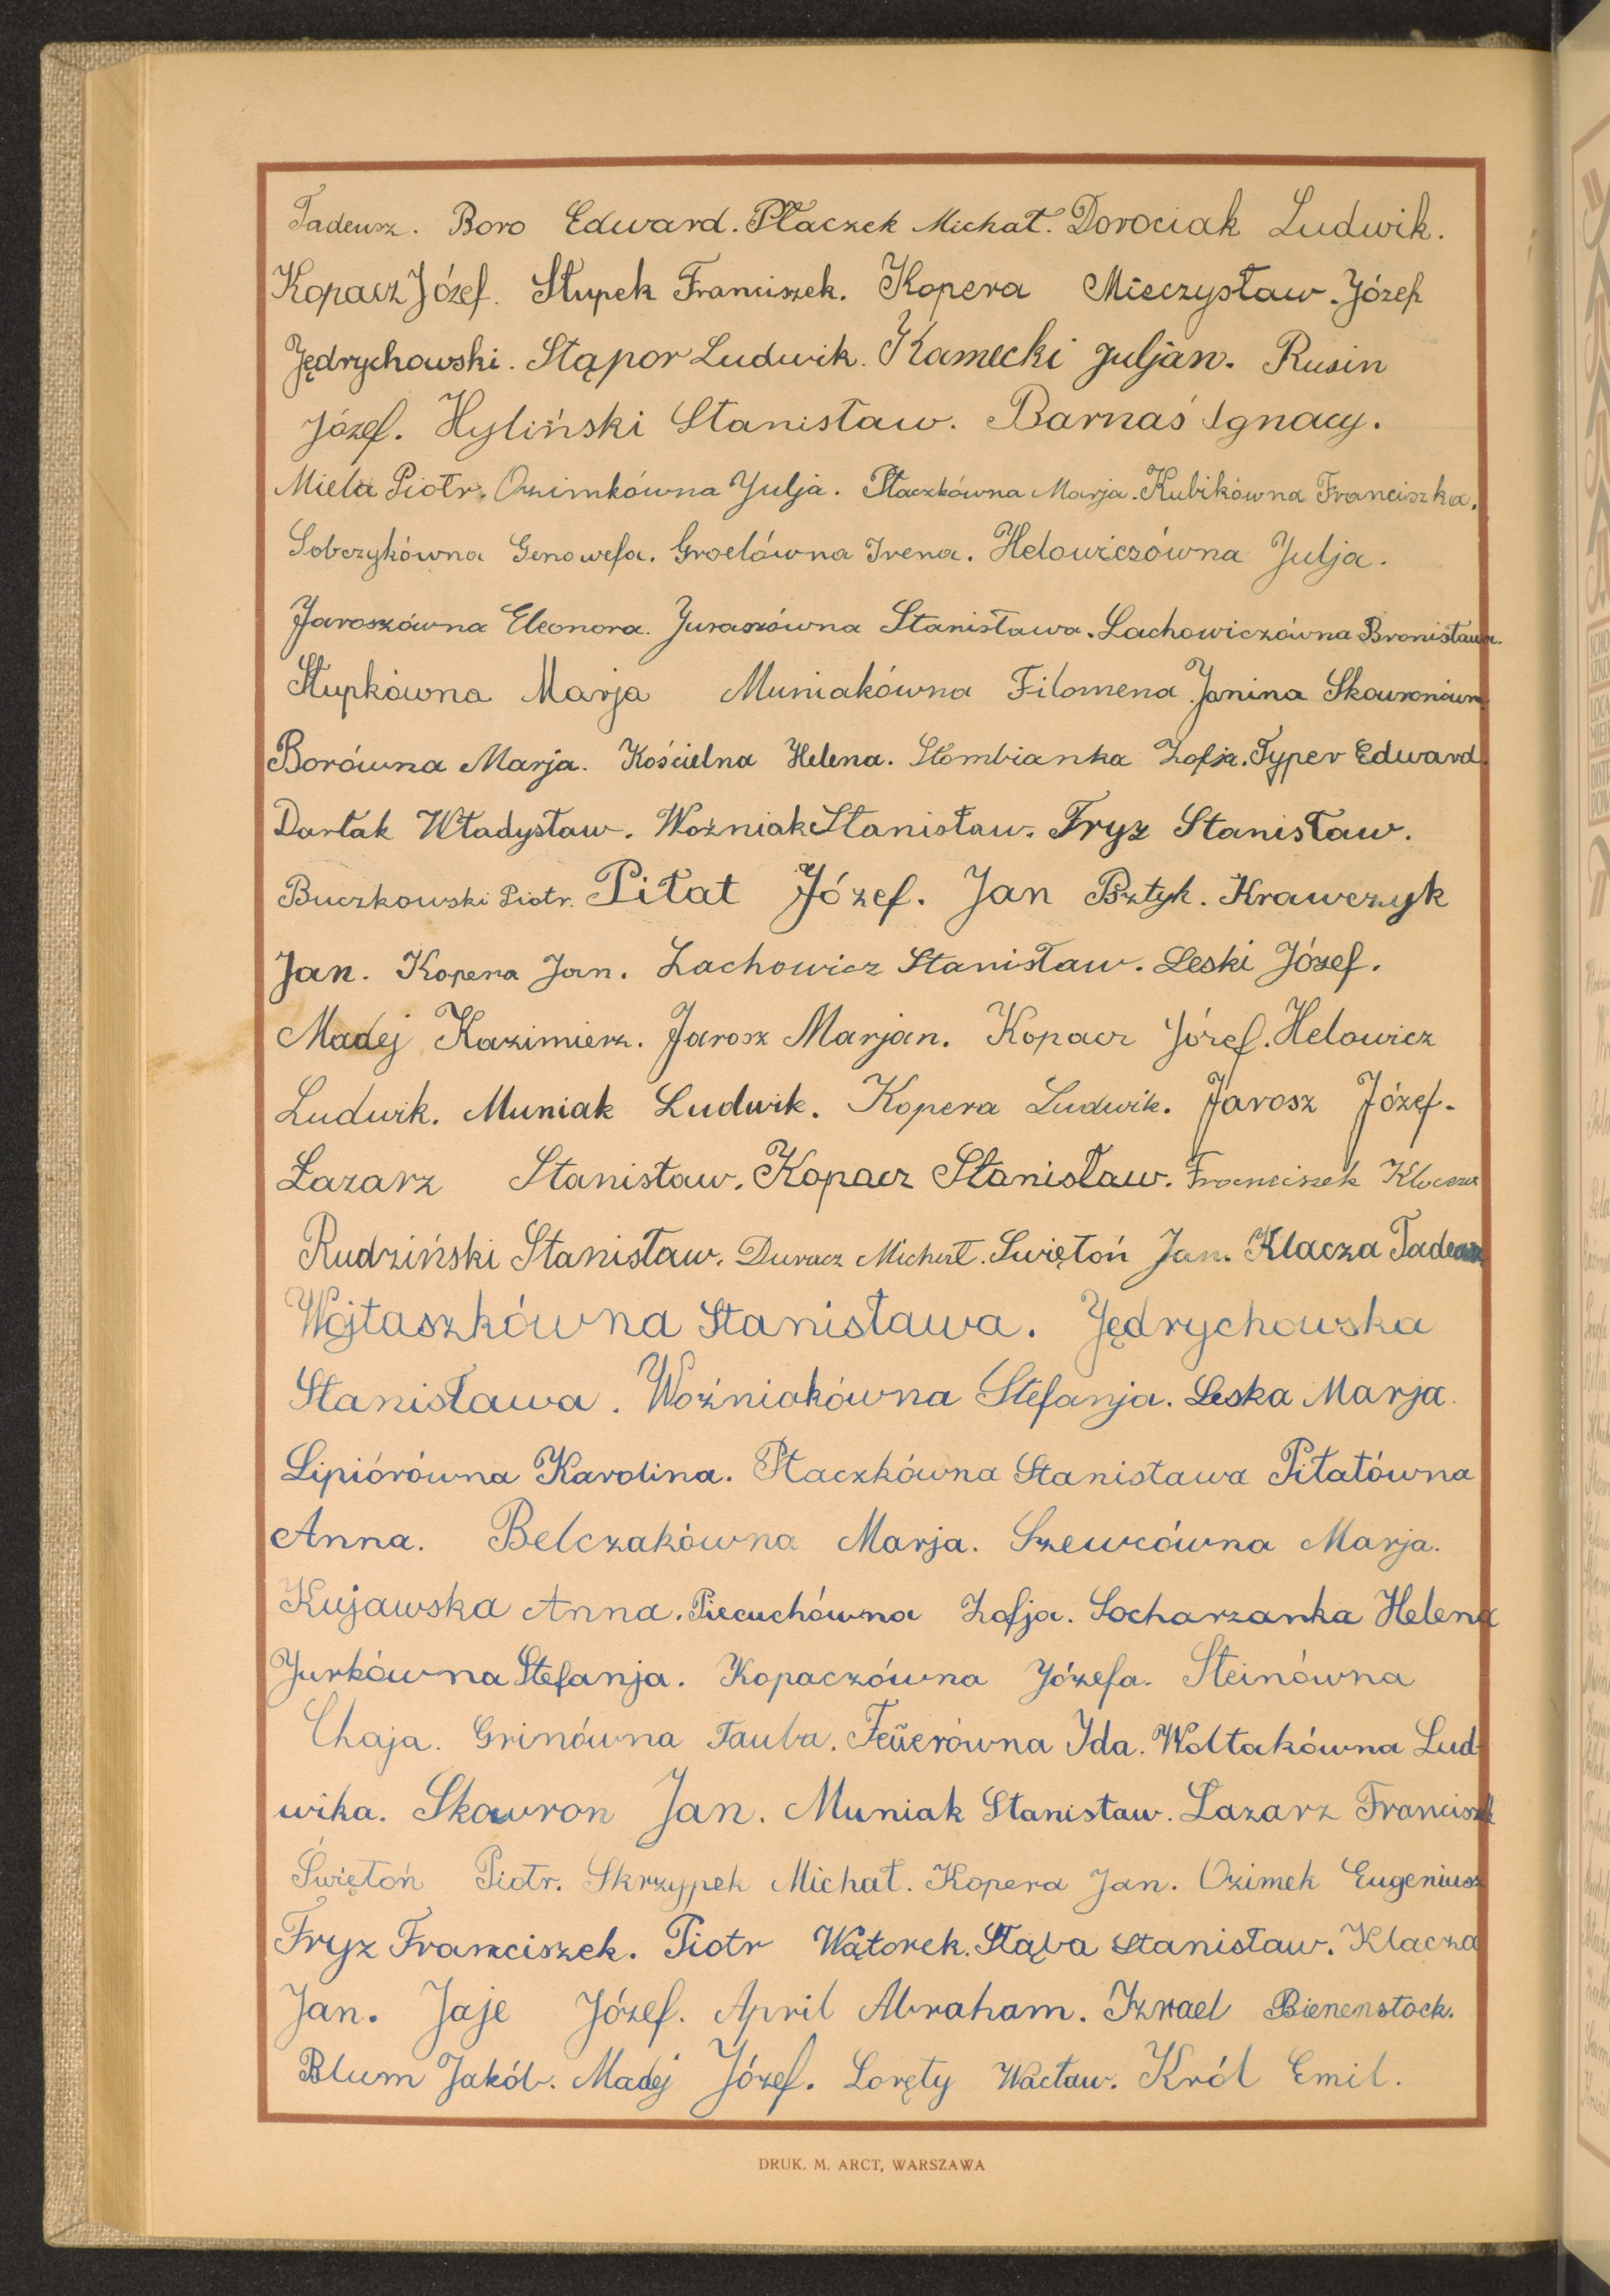 Tadeusz. Boro Edward. Płaczek Michał. Dorociak Ludwik.
Kopacz Józef. Słupek Franciszek. Kopera Mieczysław. Józef
Jędrychowski. Stąpor Ludwik. Kamecki Juljan. Rusin
Józef. Hyliński Stanisław. Barnaś Ignacy.
Miela Piotr. Ozimkówna Julja. Płaczkówna Marja. Kubikówna Franciszka.
Sobczykówna Genowefa. Groelówna Irena. Helowiczówna Julja.
Jaroszówna Eleonora. Juraszówna Stanisława. Lachowiczówna Bronisława.
Słupkówna Marja Muniakówna Filomena Janina Skowronówn
Borówna Marja. Kościelna Helena. Słombianka Zofja. Typer Edward.
Dartak Władysław. Woźniak Stanisław. Fryz Stanisław.
Buczkowski Piotr. Piłat Józef. Jan Bsztyk. Krawczyk
Jan. Kopera Jan. Lachowicz Stanisław. Leski Józef.
Madej Kazimierz. Jarosz Marjan. Kopacz Józef. Helowicz
Ludwik. Muniak Ludwik. Kopera Ludwik. Jarosz Józef.
Łazarz Stanisław. Kopacz Stanisław. Franciszek Klacza
Rudziński Stanisław. Duracz Michał. Świętoń Jan. Klacza Tadeusz
Wojtaszkówna Stanisława. Jędrychowska
Stanisława. Woźniakówna Stefanja. Leska Marja.
Lipiórówna Karolina. Płaczkówna Stanisława Piłatówna
Anna. Belczakówna Marja. Szewcówna Marja.
Kujawska Anna. Piecuchówna Zofja. Socharzanka Helena
Jurkówna Stefanja. Kopaczówna Józefa. Steinówna
Chaja. Grinówna Tauba. Feüerówna Ida. Woltakówna Lud-
wika. Skowron Jan. Muniak Stanisław. Łazarz Franciszek
Świętoń Piotr. Skrzypek Michał. Kopera Jan. Ozimek Eugeniusz
Fryz Franciszek. Piotr Wątorek. Słąba Stanisław. Klacza
Jan. Jaje Józef. April Abraham. Izrael Bienenstock.
Blum Jakób. Madej Józef. Loręty Wacław. Król Emil.
DRUK. M. ARCT, WARSZAWA